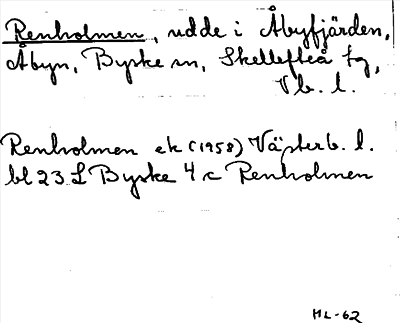 Renholmen, udde i Åbyfjärden,
Åbyn, Byske sn, Skellefteå tg,
Vb. l.
Renholmen ek (1958) Västerb. l.
bl 23 L Byske 4 c Renholmen
HL-62